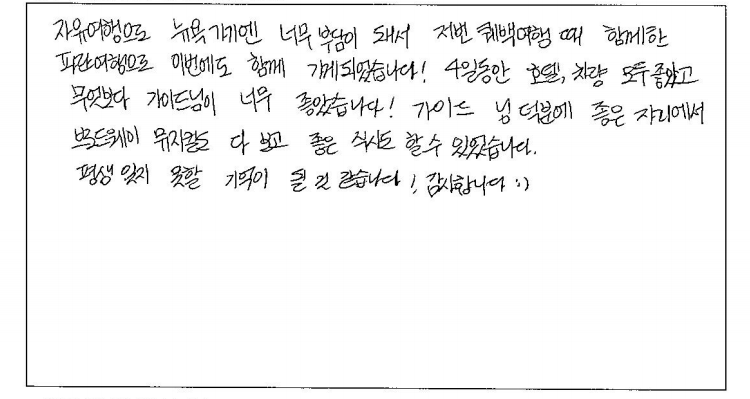 자유여행으로 뉴욕 가기엔 너무 부담이 돼서 저번 퀘백여행 때 함께한
파란여행으로 이번에도 함께 가게되었습니다! 4일동안 호텔, 차량 모두 좋았고
무엇보다 가이드님이 너무 좋았습니다! 가이드 님 덕분에 좋은 자리에서
브로드웨이 뮤지컬도 다 보고 좋은 식사도 할 수 있었습니다.
평생 잊지 못할 기억이 될 것 같습니다! 감사합니다 :)